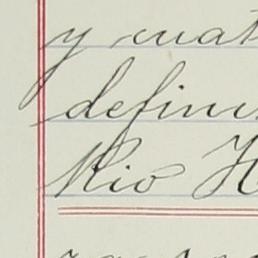 y cuat
defini
Rio H